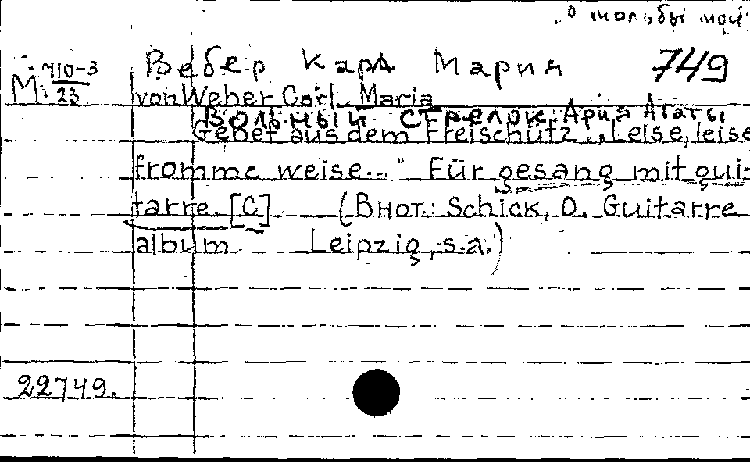 "О мольбы мой
Вебер Карл Мария 749
М: 710-3
23
von Weber Carl Maria
Вольный стрелок: Ария Агаты
Gebet aus dem Freischütz „Leise, leise
fromme weise..." Für gesang mit gui-
tarre. [C] (Внот.: Schick, O. Guitarre
album Leipzig, s.a.)
22749.